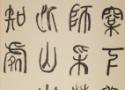 松下
師采
此山
知處